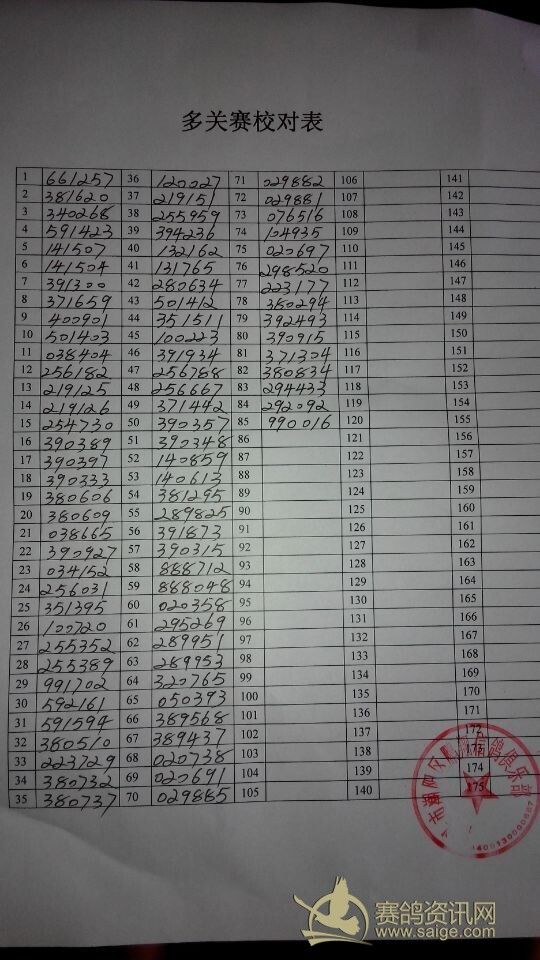 多关赛校对表
1 661257 36 120027 71 029882 106 141
2 381620 37 219151 72 029881 107 142
3 340268 38 255959 73 076516 108 143
4 591423 39 394236 74 104935 109 144
5 141507 40 132162 75 020697 110 145
6 141504 41 131765 76 298520 111 146
7 391300 42 280634 77 223177 112 147
8 371659 43 501412 78 380294 113 148
9 400901 44 351511 79 392493 114 149
10 501403 45 100223 80 390915 115 150
11 038404 46 391934 81 371304 116 151
12 256182 47 256788 82 380834 117 152
13 219125 48 256667 83 294433 118 153
14 219126 49 371442 84 292092 119 154
15 254730 50 390357 85 990016 120 155
16 390389 51 390348 86 121 156
17 390397 52 140859 87 122 157
18 390333 53 140613 88 123 158
19 380606 54 381295 89 124 159
20 380609 55 289825 90 125 160
21 038665 56 391873 91 126 161
22 390927 57 390315 92 127 162
23 034152 58 888712 93 128 163
24 256031 59 888048 94 129 164
25 351395 60 020358 95 130 165
26 100720 61 295269 96 131 166
27 255352 62 289951 97 132 167
28 255389 63 289953 98 133 168
29 991702 64 320765 99 134 169
30 592161 65 050393 100 135 170
31 591594 66 389568 101 136 171
32 380510 67 389437 102 137 172
33 223729 68 020738 103 138 173
34 380732 69 020691 104 139 174
35 380737 70 029885 105 140 175
赛鸽资讯网
www.saige.com